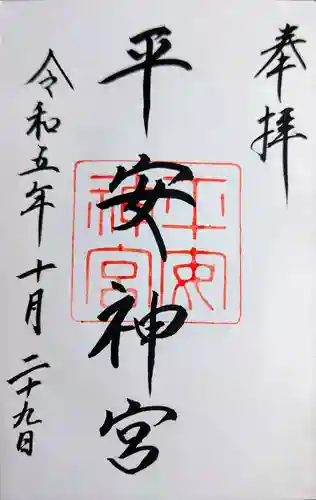 奉拝
平安神宮
平安
神宮
令和五年十月二十九日